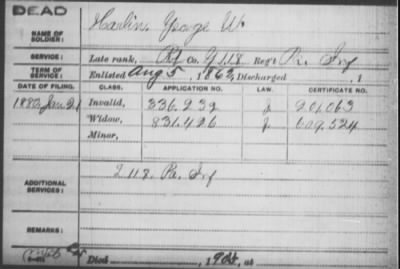 DEAD
NAME OF SOLDIER: Harlin, George W.
SERVICE: Late rank, Co. G 118 Reg't Pa. Inf
TERM OF SERVICE: Enlisted Aug 5, 1862, Discharged , 1
DATE OF FILING. CLASS. APPLICATION NO. LAW. CERTIFICATE NO.
1880 Jan 21 Invalid, 336.232 J 201.063
Widow, 831.426 J. 609.524
Minor,
ADDITIONAL SERVICES: 118. Pa. Inf
REMARKS:
Died , 190 , at